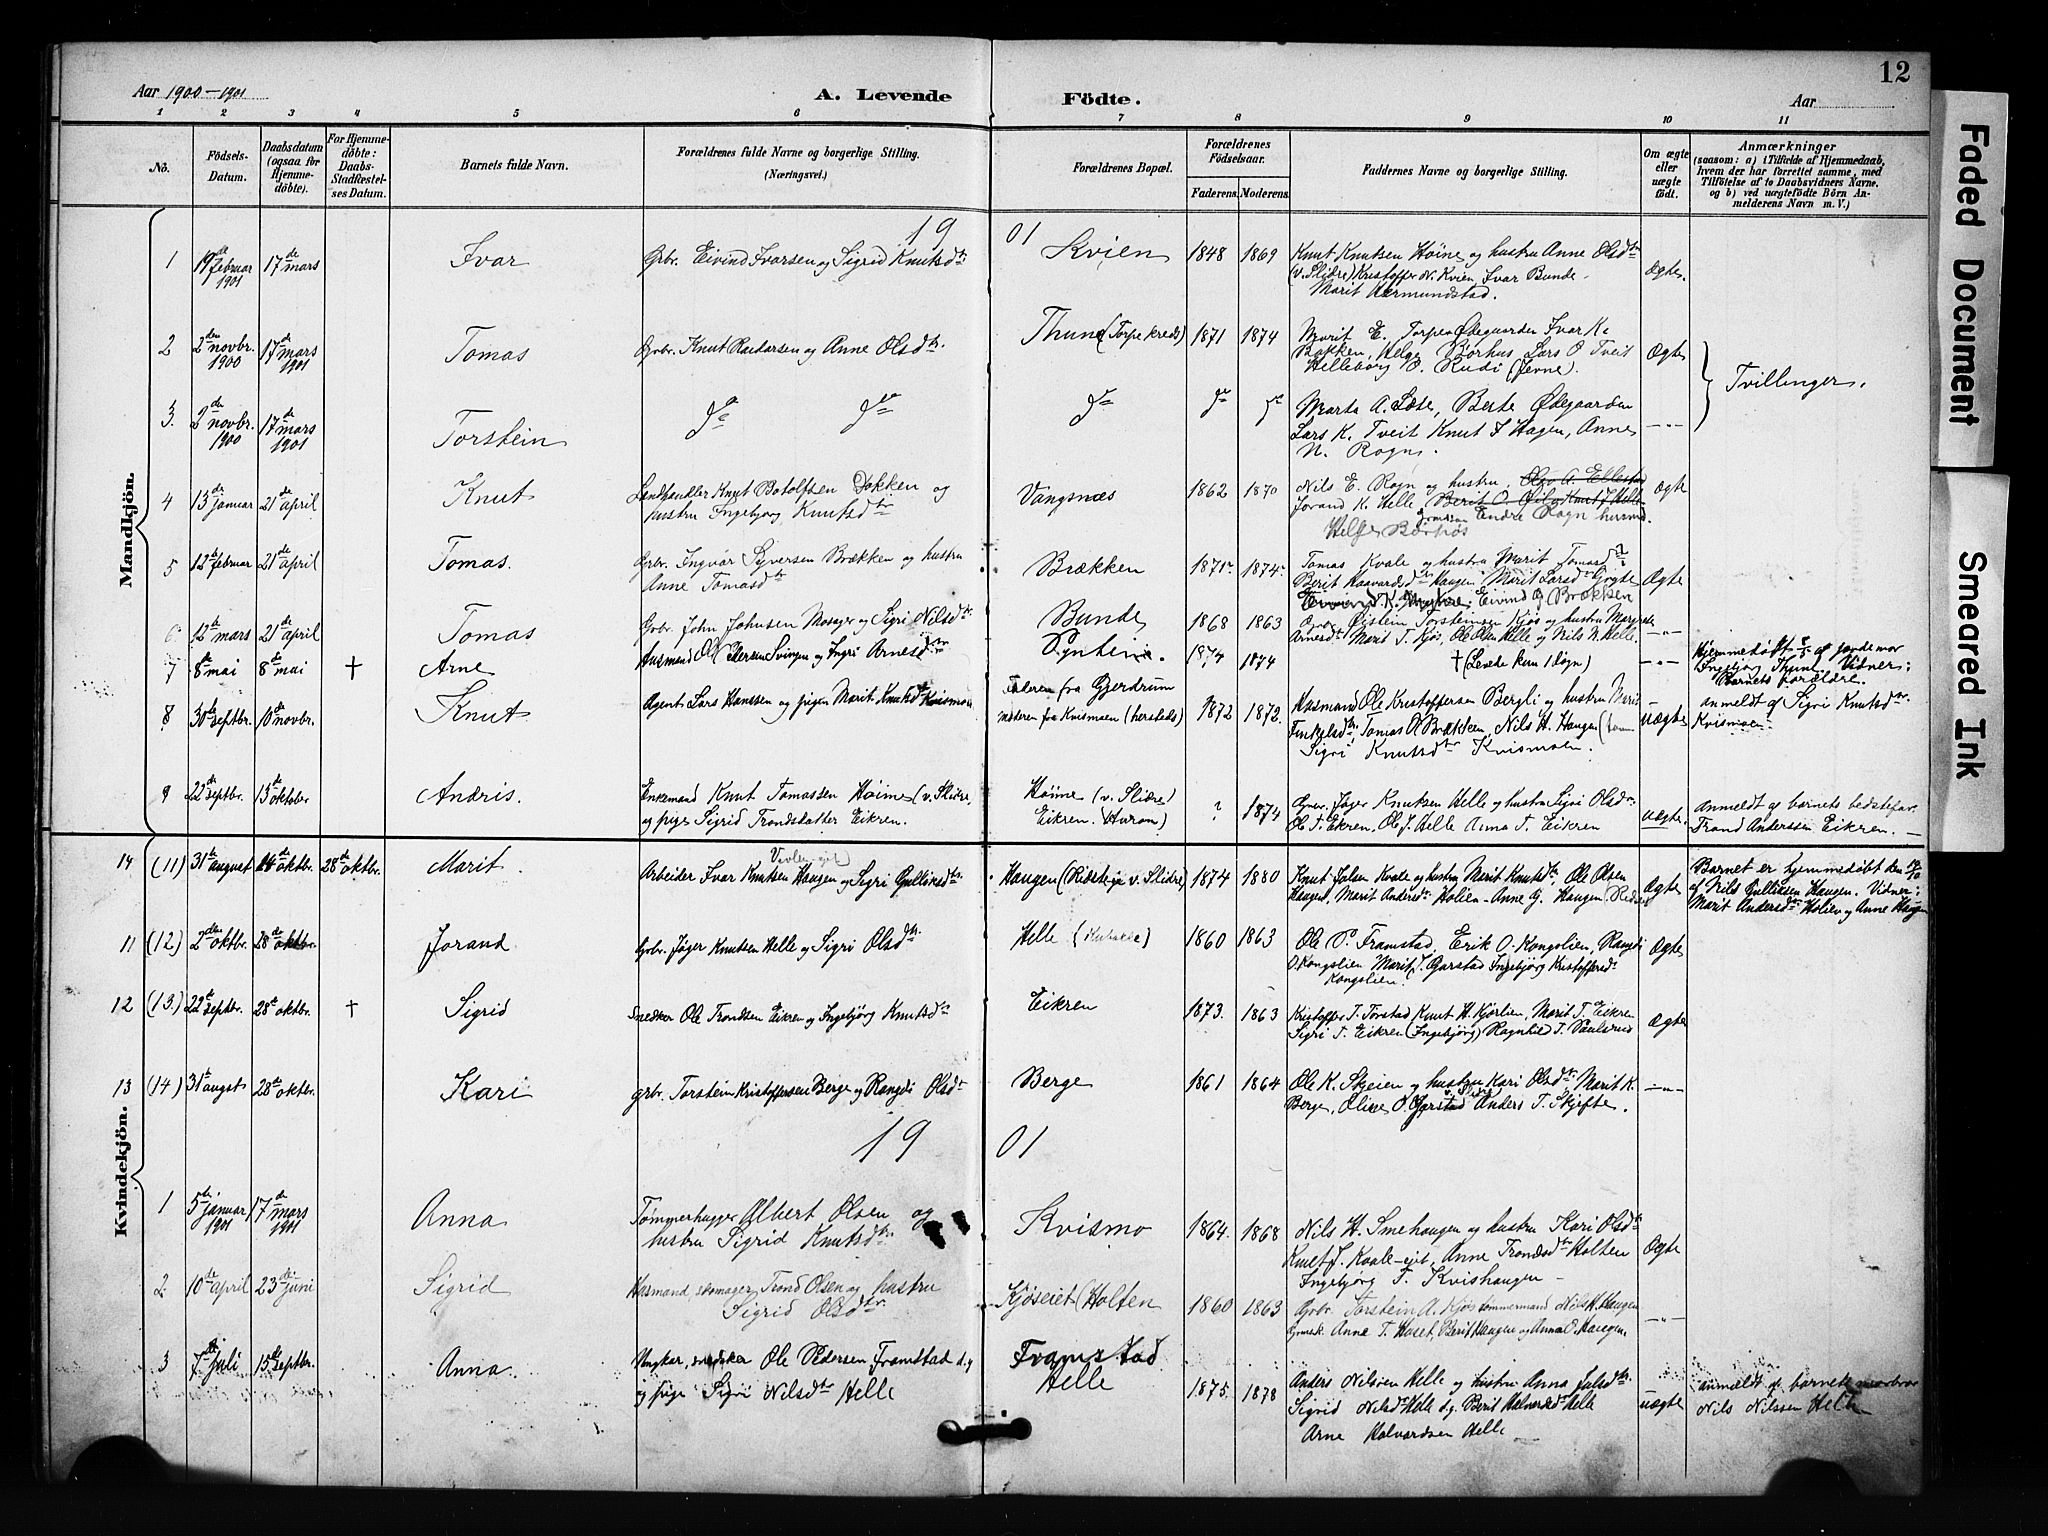 12
Aar 1900–1901
A. Levende Födte.
Aar
1 2 3 4 5 6 7 8 9 10 11
No.
Födsels-Datum.
Daabsdatum (ogsaa for Hjemme-döbte).
For Hjemme-döbte: Daabs-Stadfæstel-ses Datum.
Barnets fulde Navn.
Forældrenes fulde Navne og borgerlige Stilling.
(Næringsvei.)
Forældrenes Bopæl.
Forældrenes Födselsaar.
Faderens. Moderens.
Faddernes Navne og borgerlige Stilling.
Om ægte eller uægte födt.
Anmærkninger
(saasom: a) i Tilfælde af Hjemmedaab, hvem der har forrettet samme, med Tilföielse af to Daabsvidners Navne, og b) ved uægtefödte Börn An-melderens Navn m. V.)
Mandkjön.
19 01
1 19de februar 1901 17de mars Ivar Grbr. Eivind Ivarsen og Sigrid Knutsdtr. Kvien 1848 1869 Knut Knutsen Höine og hustru Anne Olsdtr
(v. Slidre) Kristoffer N. Kvien Ivar Bunde
Marit Hermundstad. Ægte.
2 2den novbr. 1900 17de mars 1901 Tomas Grbr. Knut Reidarsen og Anne Olsdtr. Thune (Torpe kreds) 1871 1874 Marit E. Torpe Ødegaarden Ivar K.
Bakken, Helge Børhus Lars O. Tveit
Helleborg O. Rudi (Jevne). Ægte
Tvillinger.
3. 2den novbr. 1900 17de mars 1901 Torstein Do Do Do Do Do Marta A. Sæte, Berte Ødegaarden
Lars K. Tveit Knut I Hagen, Anne
N. Rogn. —"—
4 13de januar 21de april Knut Landhandler Knut Botolfsen Dokken og
hustru Ingebjørg Knutsdtr Vangsnæs 1862 1870 Nils E. Rogn og hustru, Olga A. Ellestad
Jorand K. Helle Berit O. Knut J Helle
Endre Rogn
Helge Børhøs Ægte
5 12te februar 21de april Tomas. Grbr. Ingvar Syversen Brækken og hustru
Anne Tomasdtr Brækken 1871 1874 Tomas Kvale og hustru Marit Tomasdtr
Berit Haavardsdtr Haugen Marit Larsdtr
Eivind O Brækken Ægte
6 12te mars 21de april Tomas Grbr. John Johnsen Moager og Sigri Nilsdtr Bunde 1868 1863 Grbr. Øistein Torsteinsen Kjøs og hustru Margrete
Arnesdtr Marit T. Kjøs, Ole Olsen Helle og Nils N. Helle. —"—
7 8de mai 8de mai † Arne Husmand Ole Svingen og Ingri Arnesdtr 1874 1874 † (Levede kun 1 døgn) —"— Hjemmedøbt 8/5 af jordemor
Ingebjørg Thune. Vidner:
Barnets forældre.
8 30te septbr. 10de novbr. Knut Agent Lars Hanssen og pigen Marit Knutsdtr Kvismoen Faderen fra Gjerdrum
moderen fra Kvismoen (hersteds) 1872 1872. Husmand Ole Kristoffersen Bergli og hustru Marit
Tomas O Brækken, Nils H. Haugen
Sigri Knutsdtr Kvismoen. Uægte anmeldt af Sigri Knutsdtr.
Kvismoen
9 22de septbr. 13de oktober Andris. Enkemand Knut Tomassen Høine (v. Slidre,
og pige Sigrid Trondsdatter Eikren. Høine (v. Slidre)
Eikren. (Hurum) ? 1874 Grbr. Jøger Knutsen Helle og hustru Sigri Olsdtr.
Ole T. Eikren, Ole J. Helle Anna T. Eikren uægte. Anmeldt af barnets bedstefar
Trond Anderssen Eikren. —
14 (11) 31te august 14de oktbr. 28de oktbr. Marit. Arbeider Ivar Knutsen Haugen og Sigri Gulliksdtr. Haugen (Ridsteign v. Slidre) 1874 1880 Knut Kvale og hustru Marit Knutsdtr, Ole Olsen
Haugen, Marit Andersdtr Holien – Anne G. Haugen Ægte Barnet er hjemmedøbt den 14/10
af Nils Gulliksen Haugen. Vidner:
Marit Andersdtr Holien og Anne Haugen
11 (12.) 2den oktbr. 28de oktbr. Jorand Grbr. Jøger Knutsen Helle og Sigri Olsdtr. Helle 1860 1863 Ole P. Framstad, Erik O. Kongslien, Rangdi
O. Kongslien Marit J. Garstad Ingebjørg Kristoffersdtr
Kongslien. Ægte
12 (13.) 22de septbr. 28de oktbr. † Sigrid Snedker Ole Trondsen Eikren og Ingebjørg Knutsdtr Eikren 1873. 1863 Kristoffer T. Torstad Knut H. Kjørlien, Marit T. Eikren
Sigri T. Eikren (Ingebjørg) Ragnhild T. Paulsrud Ægte
13 (14) 31te augst 28de oktbr. Kari grbr. Torstein Kristoffersen Berge og Rangdi Olsdtr Berge 1861 1864 Ole K. Skjeien og hustru Kari Olsdtr, Marit K.
Berge, Oline O. Garstad Anders T. Skjefte. —"—
Kvindekjön.
19 01
1 5te januar 1901 17de mars 1901 Anna Tømmerhugger Albert Olsen og
hustru Sigrid Knutsdtr. Kvismo 1864. 1868 Nils H. Smehaugen og hustru Kari Olsdtr
Knut J. Kvale-eit, Anne Trondsdtr Holten
Ingebjørg T. Kvishaugen — Ægte
2 10de april 23de juni Sigrid Husmand skomager Trond Olsen og hustru
Sigrid Olsdtr. Kjøseiet (Holten 1860 1863 Grbr. Torstein A. Kjøs tømmermand Nils H. Haugen
Anne T. Huset, Berit Haugen og Anna O. Haugen. —"—
3 7de juli 15de septbr. Anna. Ungkar, snedker Ole Pedersen Framstad d.y
og pige Sigri Nilsdtr Helle Framstad
Helle 1875. 1878 Anders Nilsen Helle og hustru Anna
Sigrid Nilsdtr Helle d.y. Berit Halvorsdtr Helle
Arne Halvardsen Helle — uægte anmeldt af barnets morbror
Nils Nilssen Helle
Faded Document
Smeared Ink